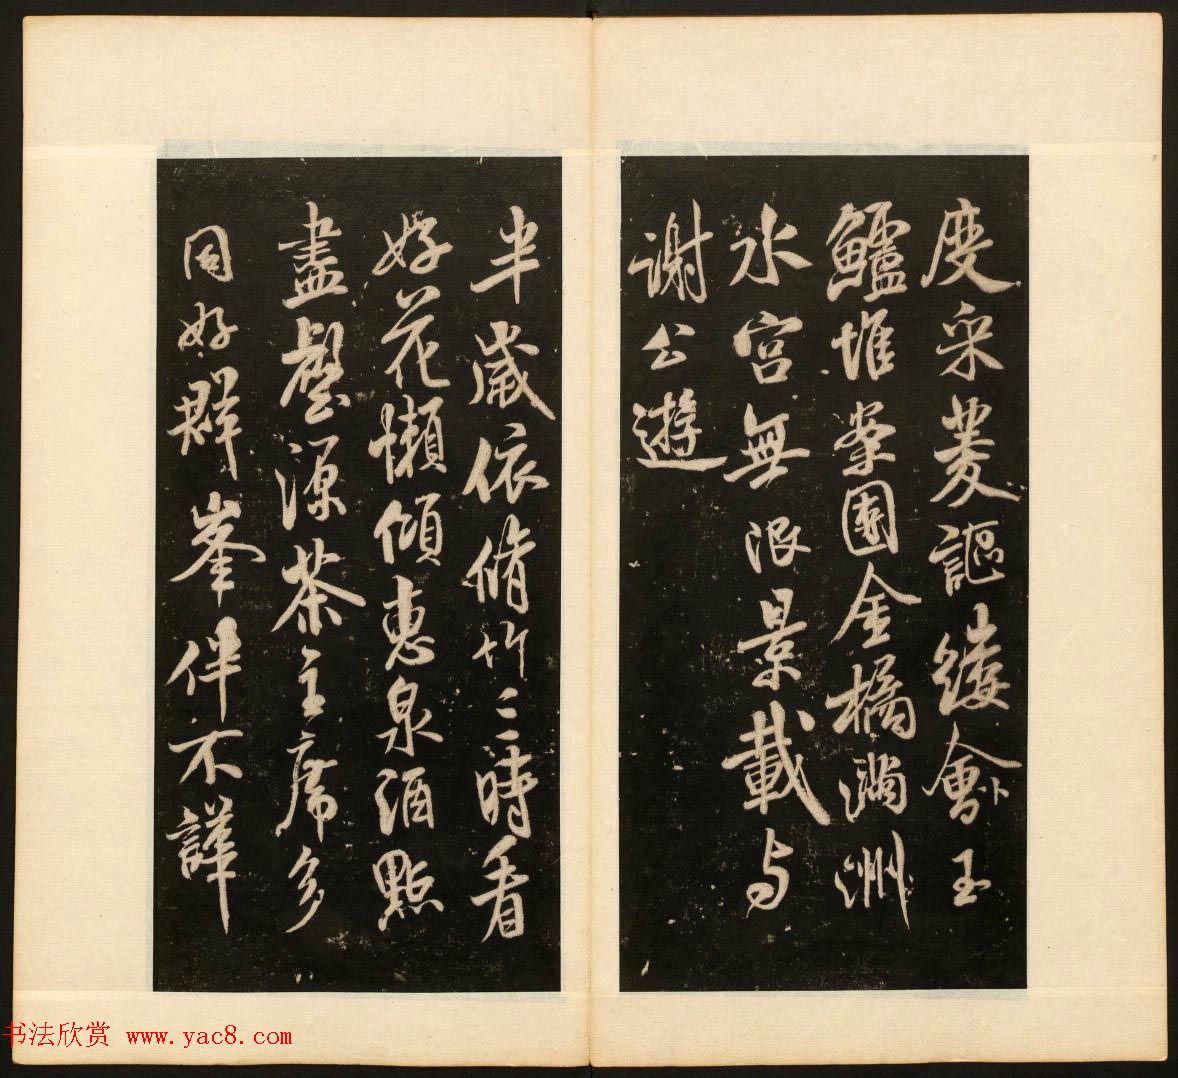 度采菱謳縷會卜玉
鱸堆案團金橘滿洲
水宮無限景載与
謝公遊
半歲依脩竹三時看
好花懶傾惠泉酒點
盡壑源茶主席多
同好群峯伴不譁
书法欣赏 www.yac8.com